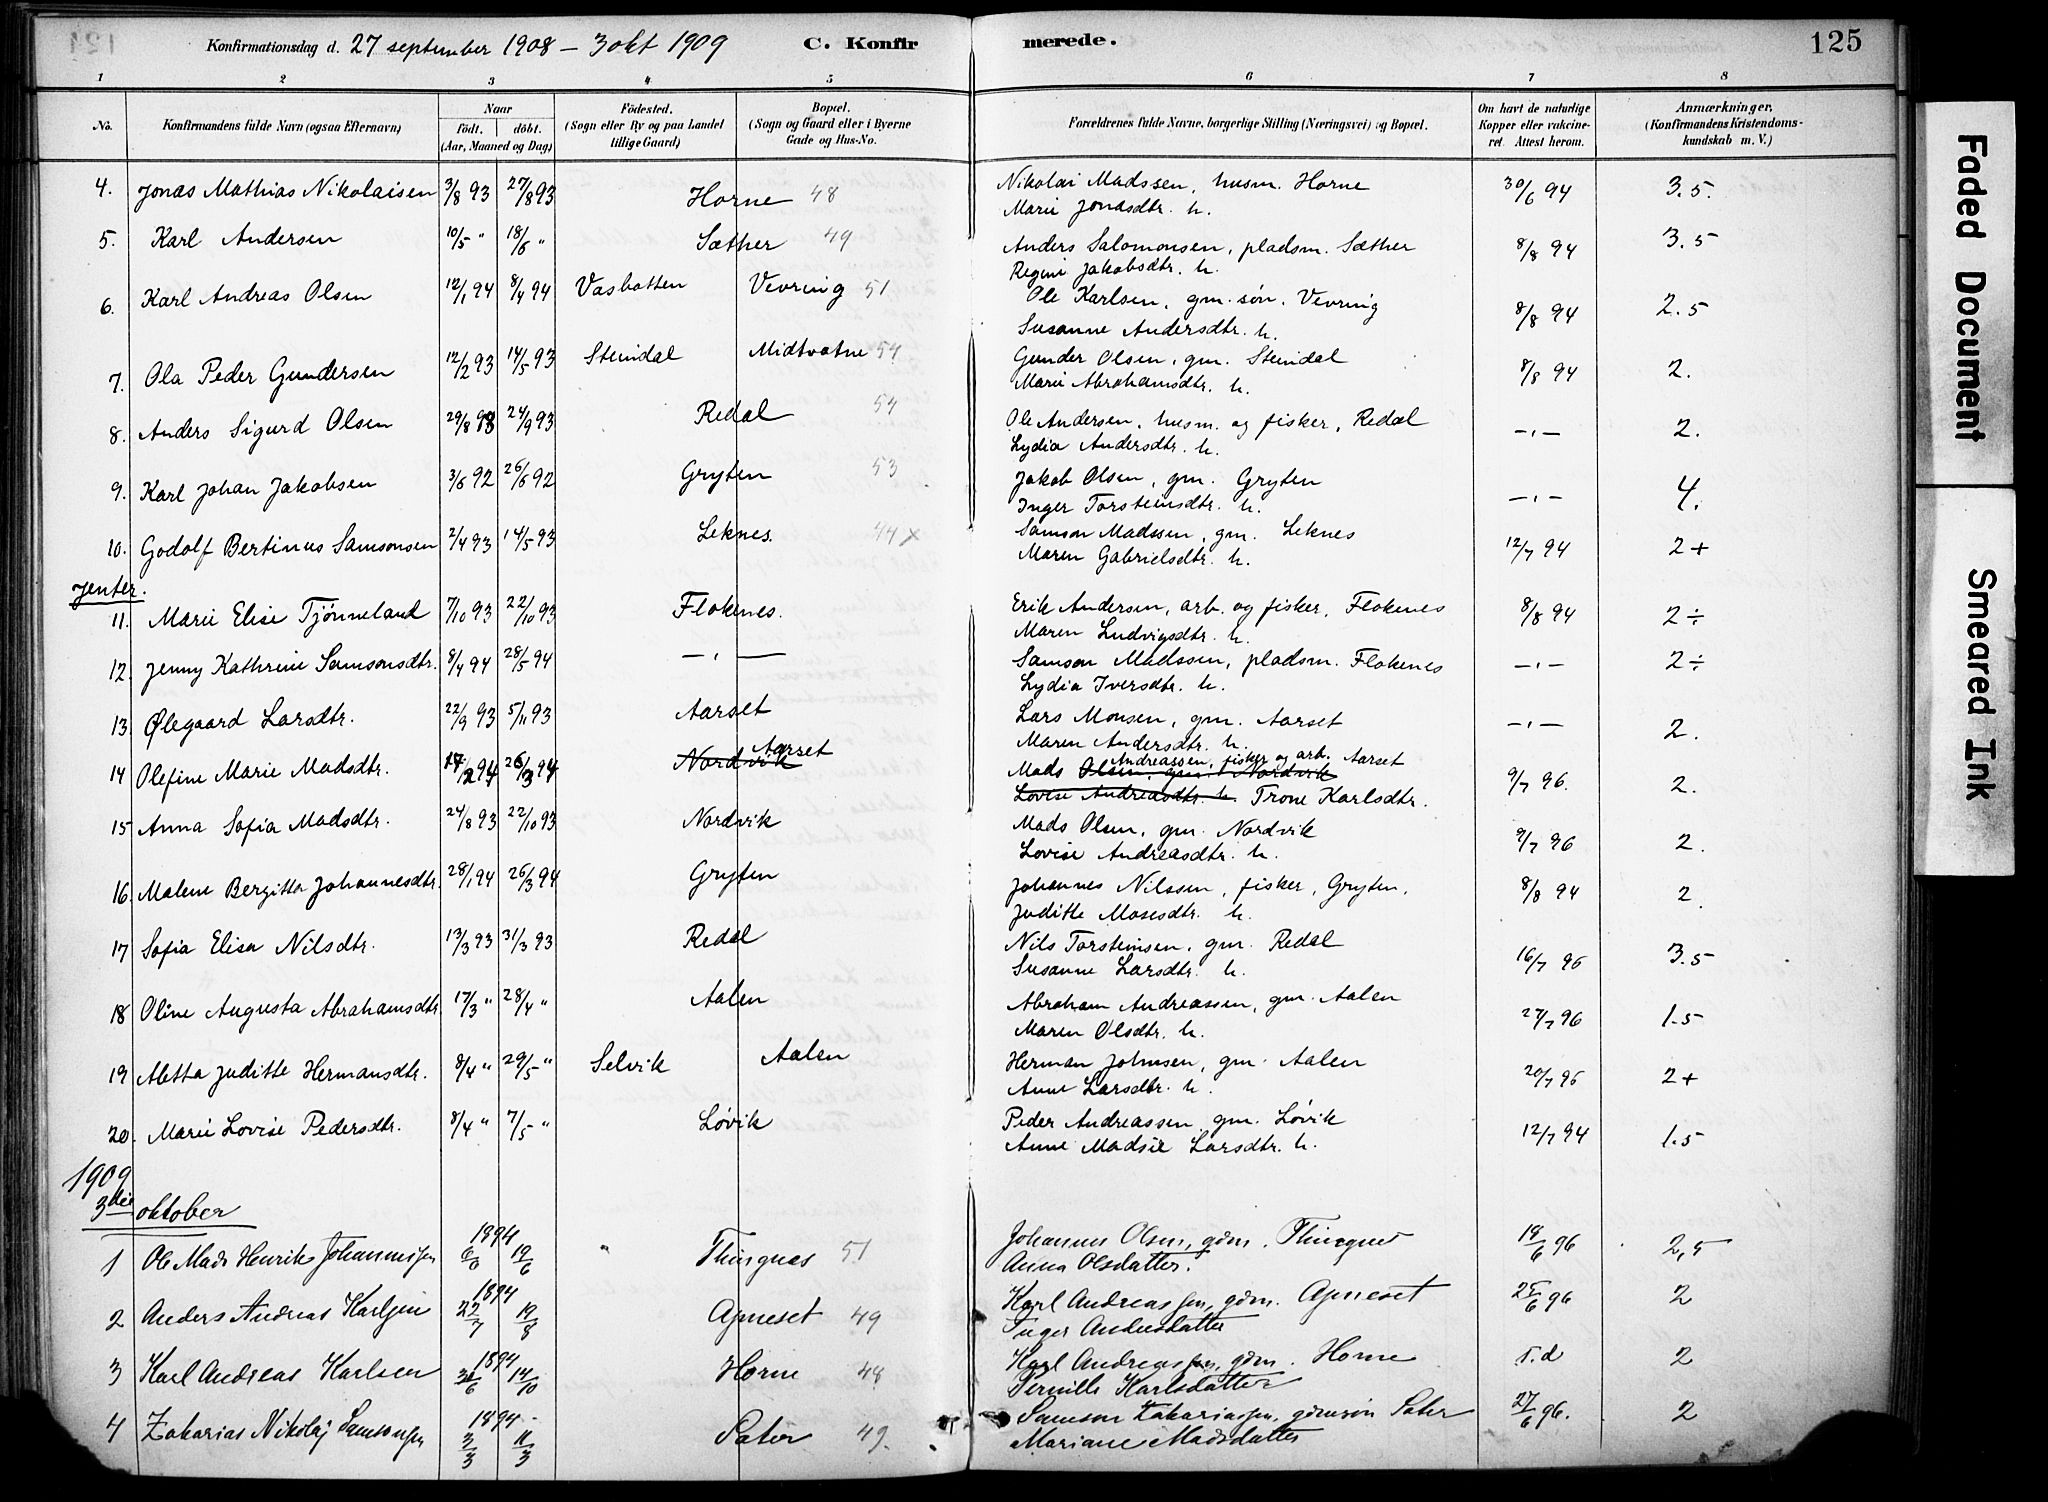 Konfirmationsdag d. 27 september 1908 – 3 okt 1909 C. Konfirmerede. 125
1 2 3 4 5 6 7 8
No. Konfirmandens fulde Navn (ogsaa Efternavn) Naar født. døbt. (Aar, Maaned og Dag) Födested. (Sogn eller By og paa Landet tillige Gaard) Bopæl. (Sogn og Gaard eller i Byerne Gade og Hus-No. Forældrenes fulde Navne, borgerlige Stilling (Næringsvei) og Bopæl. Om havt de naturlige Kopper eller vakcineret. Attest herom. Anmærkninger, (Konfirmandens Kristendomskundskab m. V.)
4. Jonas Mathias Nikolaisen 3/8 93 27/8 93 Horne 48 Nikolai Madssen, husm. Horne 30/6 94 3.5.
Marie Jonasdtr. h.
5. Karl Andersen 10/5 " 18/6 " Sæther 49 Anders Salomonsen, pladsm. Sæther 8/8 94 3.5
Regine Jakobsdtr. h.
6. Karl Andreas Olsen 12/1 94 8/4 94 Vasbotten Vevring 51 Ole Karlsen, gm. søn, Vevring 8/8 94 2.5
Susanne Andersdtr. h.
7. Ola Peder Gundersen 12/2 93 14/5 93 Steindal Midtvatne 54 Gunder Olsen, gm. Steindal 8/8 94 2.
Marie Abrahamsdtr. h.
8. Anders Sigurd Olsen 29/8 93 24/9 93 Redal 54 Ole Andersen, husm. og fisker, Redal —"— 2.
Lydia Andersdtr. h.
9. Karl Johan Jakobsen 3/6 92 26/6 92 Gryten 53 Jakob Olsen, gm. Gryten —"— 4.
Inger Torsteinsdtr. h.
10. Godolf Bertinus Samsonsen 2/4 93 14/5 93 Leknes. 44 x Samson Madssen, gm. Leknes 12/7 94 2+
Maren Gabrielsdtr. h.
Jenter.
11. Marie Elise Tjønneland 7/10 93 22/10 93 Flokenes. Erik Andersen, arb. og fisker, Flokenes 8/8 94 2÷
Maren Ludvigsdtr. h.
12. Jenny Kathrine Samsonsdtr. 8/4 94 28/5 94 —"— Samson Madssen, pladsm. Flokenes —"— 2÷
Lydia Iversdtr. h.
13. Ølegaard Larsdtr. 22/9 93 5/11 93 Aarset Lars Monsen, gm. Aarset —"— 2.
Maren Andersdtr. h.
14 Olefine Marie Madsdtr. 17/2 94 26/3 94 Nordvik Aarset Mads Olsen, gm. Nordvik Andreassen, fisker og arb. Aarset 9/7 96. 2.
Lovise Andreasdtr. h. Trone Karlsdtr.
15 Anna Sofia Madsdtr. 24/8 93 22/10 93 Nordvik Mads Olsen, gm. Nordvik 9/7 96 2.
Lovise Andreasdtr. h.
16. Malene Bergitta Johannesdtr. 28/1 94 26/3 94 Gryten Johannes Nilssen, fisker, Gryten. 8/8 94 2.
Juditte Mosesdtr. h.
17 Sofia Elisa Nilsdtr. 13/3 93 31/3 93 Redal Nils Torsteinsen, gm. Redal 16/7 96 3.5
Susanne Larsdtr. h.
18 Oline Augusta Abrahamsdtr 17/3 " 28/4 " Aalen Abraham Andreassen, gm. Aalen 27/7 96 1.5
Maren Olsdtr. h.
19 Aletta Juditte Hermansdtr. 8/4 " 29/5 " Selvik Aalen Herman Johnsen, gm. Aalen 20/7 96 2+
Anne Larsdtr. h.
20. Marie Lovise Pedersdtr. 8/4 " 7/5 " Løvik Peder Andreassen, gm. Løvik 12/7 94 1.5
Anne Madsie Larsdtr. h.
1909
3die oktober
1 Ole Mads Henriks Johannessen 1894 19/6 " Thingnes 51 Johannes Olsen, gdm. Thingnes 19/6 96 2,5
Anna Olsdatter.
2 Anders Andreas Karlsen 1894 22/7 19/8 Apneset 49 Karl Andreassen, gdm. Apneset 25/6 96 2
Inger Andersdatter
3 Karl Andreas Karlsen 1894 14/10 Horne 48 Karl Andreassen, gdm. Horne s.d 2
Pernille Karlsdatter
4 Zakarias Nikolaj Samsonsen 1894 3/3 11/3 Sæter 49. Samson Zakariassen, gdmsøn Sæter 27/6 96. 2
Mariane Madsdatter
Faded Document
Smeared Ink